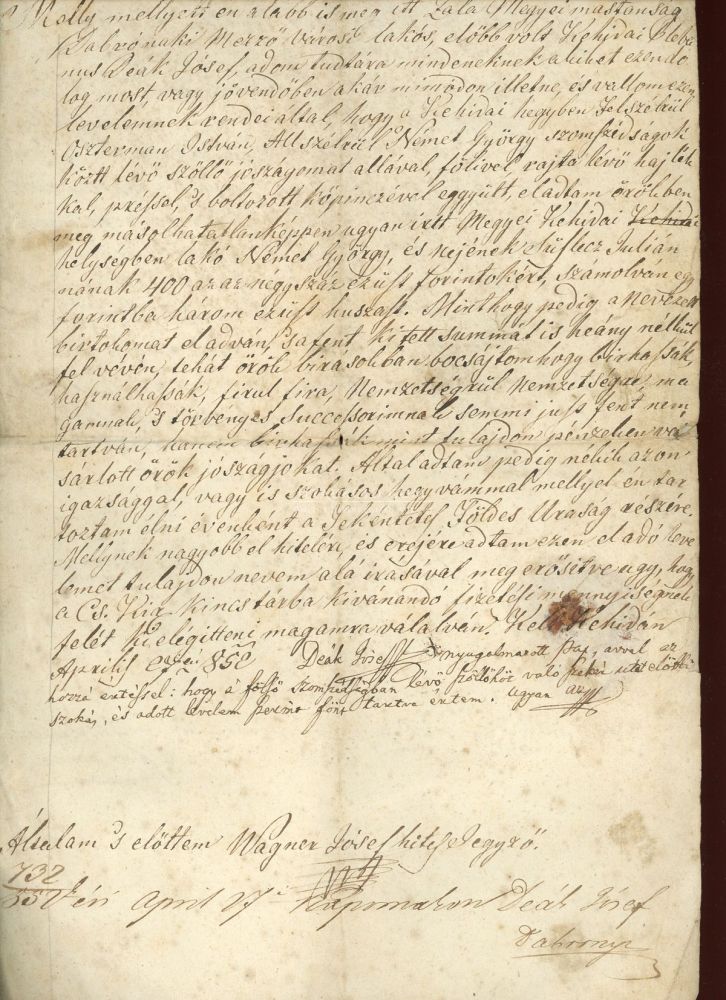 Melly mellyett én alább is meg irt Zala Megyei mostanság
Dabrónaki Mezző városi lakós, előbb volt Kéhidai Pleba
nus Deák Jósef, adom tudtára mindeneknek a kiket ezen do
log most, vagy jövendőben akár mimódon illetne, és vallom ezen
levelemnek rendei által, hogy a Kéhidai hegyben Felszélrül
Oszterman István, Allszélrül Német György szomszédságok
köztt lévő szőllő jószágomat allával, fölivel, rajta lévő hajlék
kal, préssel, 's boltozott kőpinczével eggyütt eladtam örökben
meg másolhatatlanképpen ugyan irtt Megyei Kéhidai Kéhidai
helységben lakó Német György, és nejének Juliàn
nának 400 az az négyszáz ezüst forintokért, számolván egy
forintba három ezüst huszast. Minthogy pedig a nevezett
birtokomat eladván, 's a fent kitett summát is heány nélkül
fel vévén, tehát örök birásokban bocsájtom hogy Birhassák,
használhassák, firul fira, Nemzetségrül Nemzetségre, ma
gamnak, 's törvényes Successorimnak semmi just fent nem
tartván, hanem birhassák mint tulajdon pénzeken vá
sárlott örök jószágjokat. Által adtam pedig nékik azon
igazsággal, vagy is szokásos hegyvámmal mellyel én tar
toztam élni évenként a Tekéntetes Földes Uraság részére.
Mellynek nagyobb el hitelére, és erejére adtam ezen eladó leve
lemet tulajdon nevem alá irásával meg erősitve ugy, hogy
a Cs. Kir. Kincstárba kivánandó fizetési mennyiségnek
felét ki elégitteni magamra válalván. Kelt Kéhidán
Aprilis 850 Deák Jósef nyugalmazott Pap, avval az
hozzá értéssel: hogy a fölső szomszédságban lévő való út előtti
szokás, és adott levelem fönt tartva értem. ugyan az
Általam 's előttem Wagner Jósef hites Jegyző.
732
April 27 Kapornakon Deák Jósef